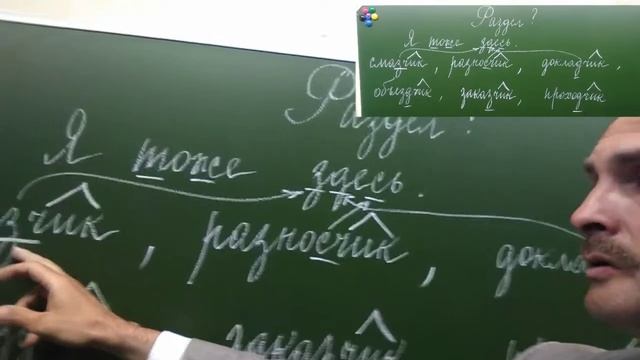 Раздел?
Я тоже здесь.
смазчик, разносчик, докладчик,
объездчик, заказчик, проходчик
Раздел?
Я тоже здесь.
зчик, разносчик, докла
заказчик